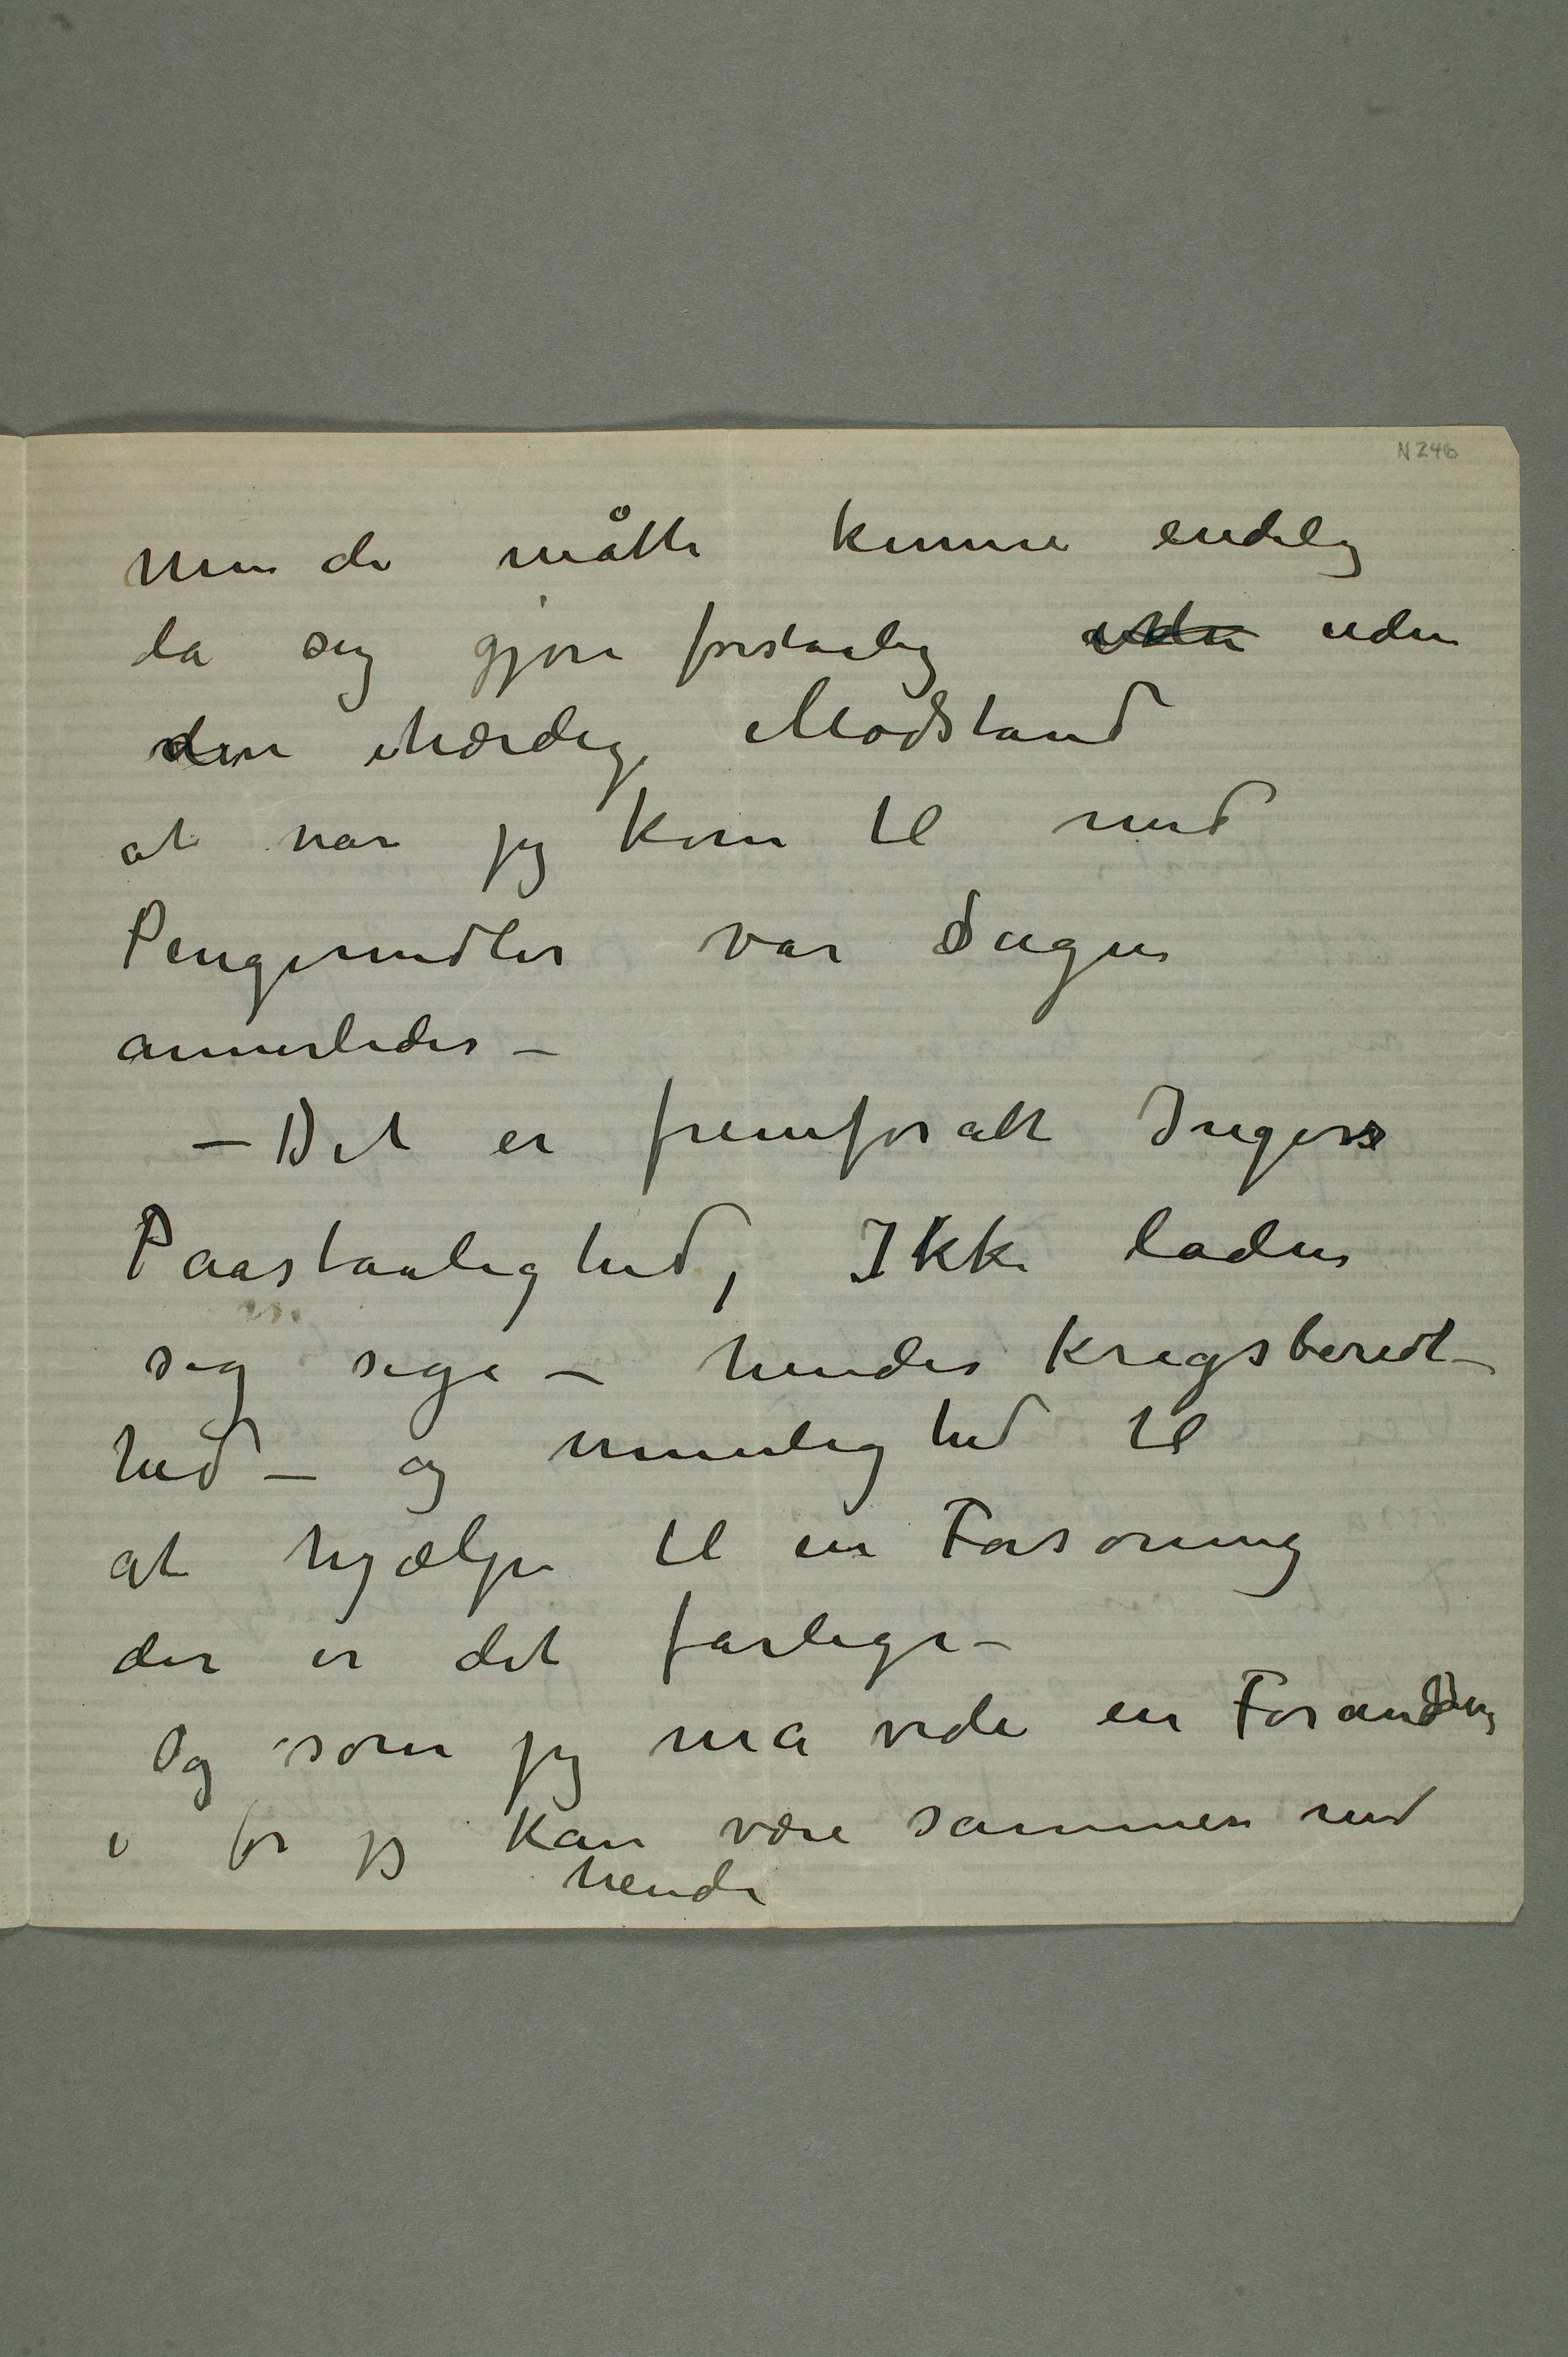 N 246
Men de måtte kunne endelig
la sig gjøre forstaalig uden uden
den ihærdige Modstand
at når jeg kom til med
Pengemidler var Sagen
annerledes –
– Det er fremforalt Ingers
Paastaalighed, Ikke laden
sig sige – hendes Krigsberedt–
hed – og umulighed til
at hjælpe til en Forsoning
der er det farlige –
Og som jeg må vide en Forandring
i før jeg kan være sammen med
hende